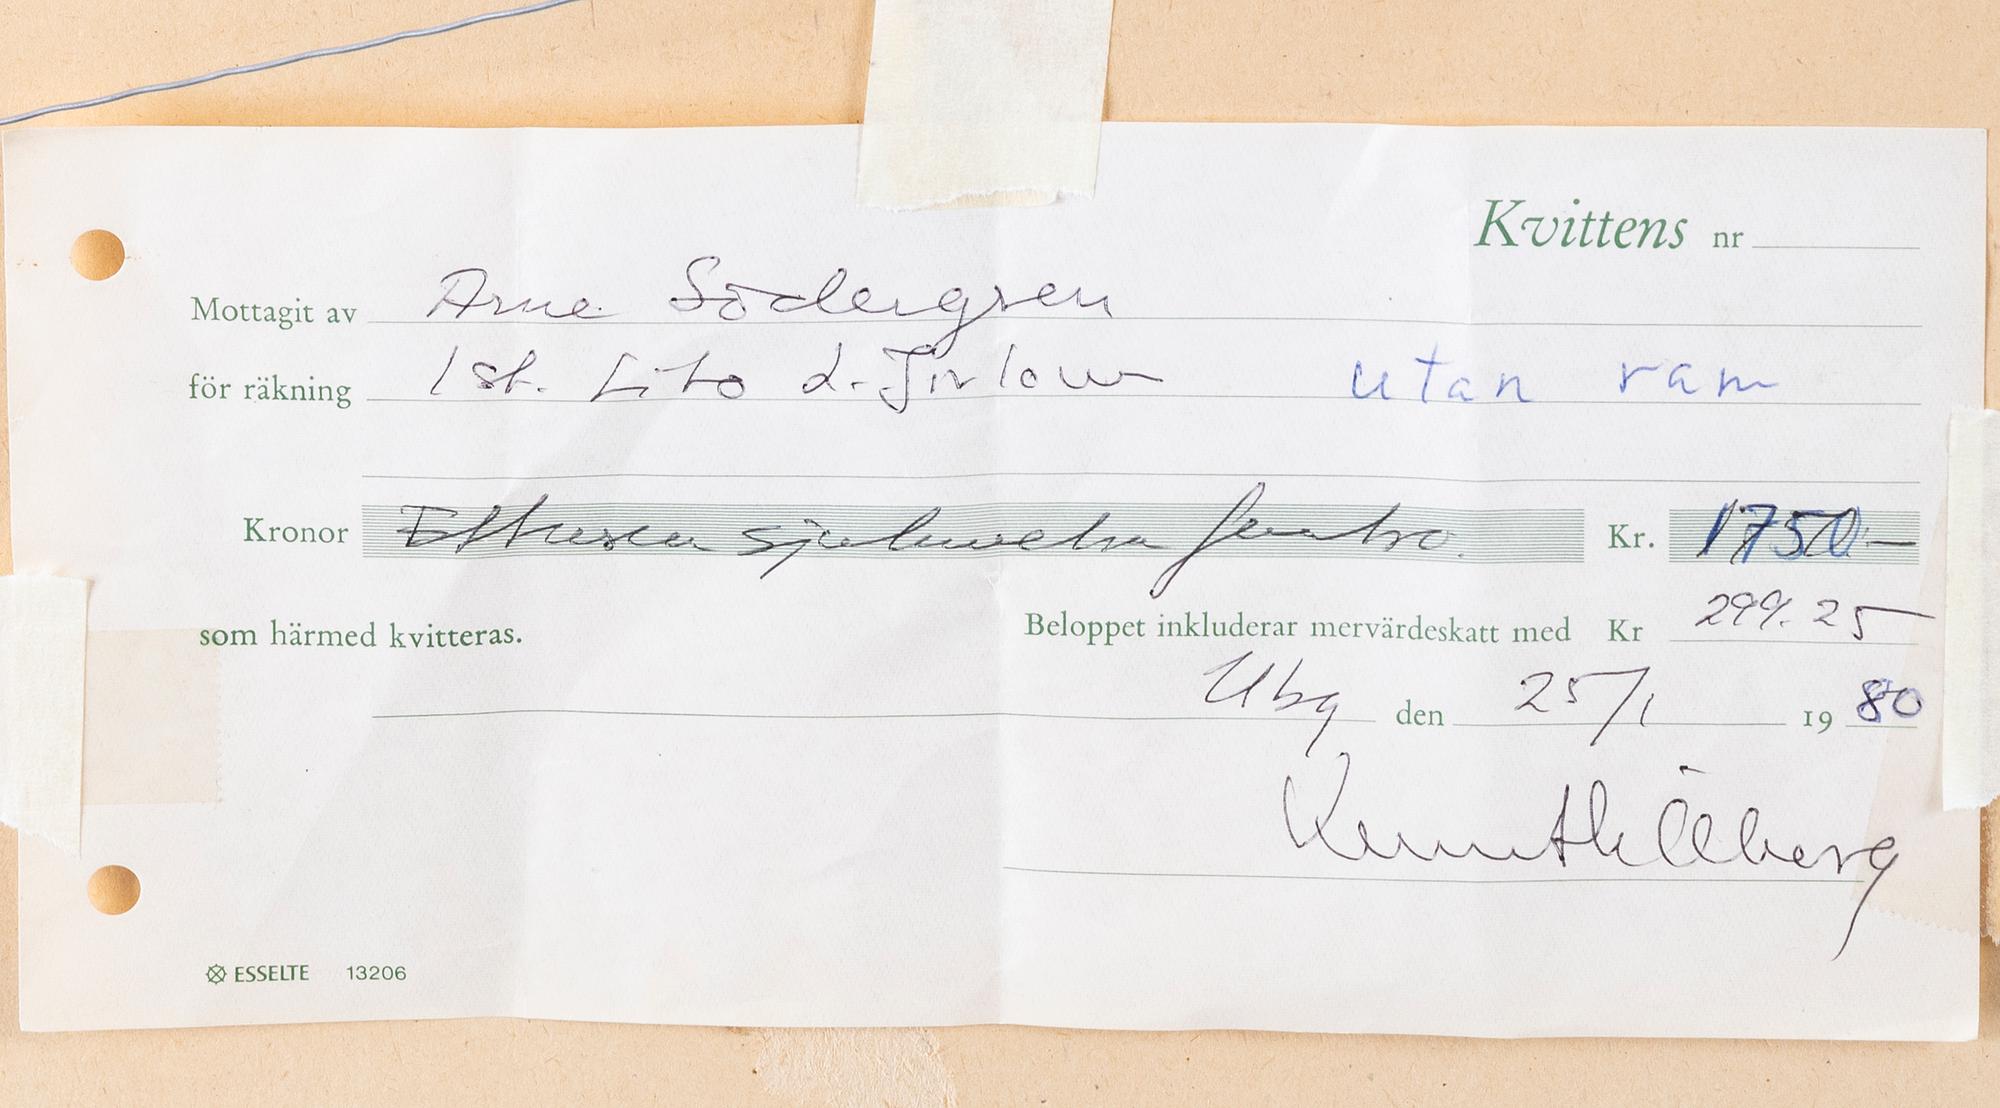 Kvittens nr
Mottagit av Arne Södergren
för räkning 1 st. Lito d. Jirlow utan ram
Kronor Ettusen sjuhundra femtio.
Kr. 1750:-
som härmed kvitteras.
Beloppet inkluderar mervärdeskatt med Kr 299.25
Ubg den 25/1 19 80
Kenneth Åberg
ESSELTE 13206